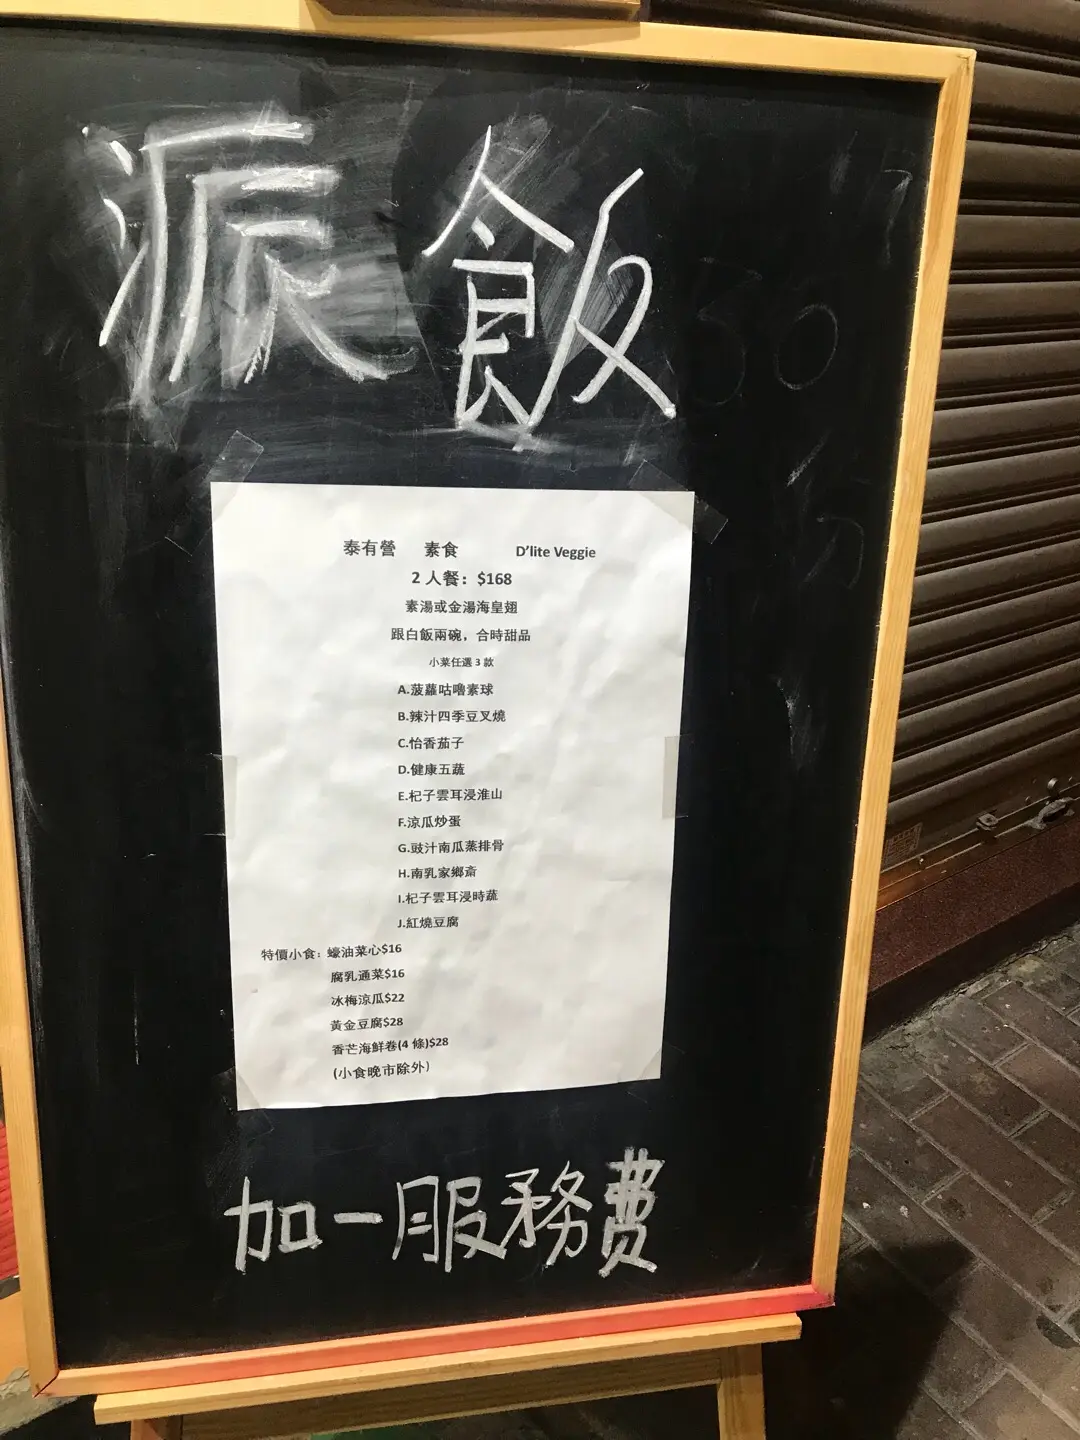 派飯
泰有營 素食 D'lite Veggie
2 人餐：$168
素湯或金湯海皇翅
跟白飯兩碗，合時甜品
小菜任選 3 款
A.菠蘿咕嚕素球
B.辣汁四季豆叉燒
C.怡香茄子
D.健康五蔬
E.杞子雲耳浸淮山
F.涼瓜炒蛋
G.豉汁南瓜蒸排骨
H.南乳家鄉齋
I.杞子雲耳浸時蔬
J.紅燒豆腐
特價小食：蠔油菜心$16
腐乳通菜$16
冰梅涼瓜$22
黃金豆腐$28
香芒海鮮卷(4 條)$28
(小食晚市除外)
加一服務費